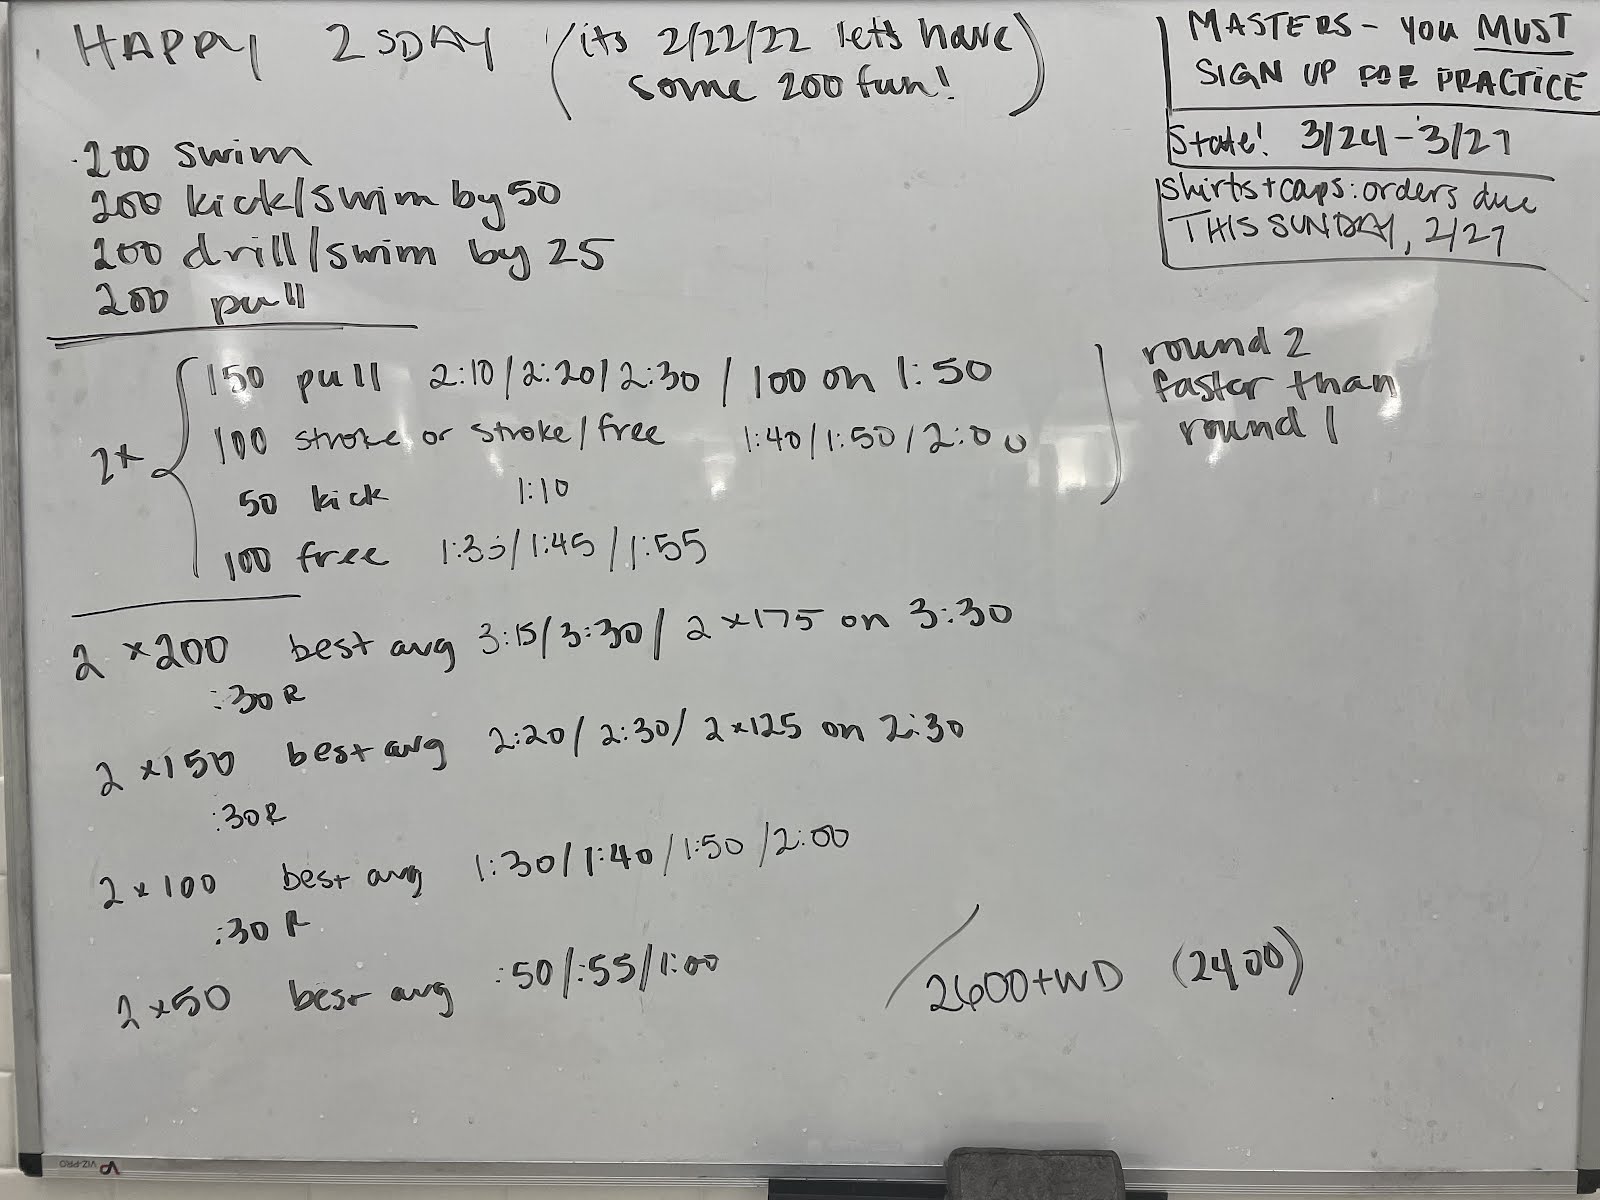 HAPPY 2SDAY (its 2/22/22 lets have
some 200 fun!)
MASTERS - YOU MUST
SIGN UP FOR PRACTICE
State! 3/24-3/27
shirts+caps: orders due
THIS SUNDAY, 2/27
200 swim
200 kick/swim by 50
200 drill/swim by 25
200 pull
2x
150 pull 2:10/2:20/2:30 / 100 on 1:50
100 stroke or stroke/free 1:40/1:50/2:00
50 kick 1:10
100 free 1:35/1:45/1:55
round 2
faster than
round 1
2 x200 best avg 3:15/3:30/ 2x175 on 3:30
:30 R
2 x150 best avg 2:20/ 2:30/ 2x125 on 2:30
:30R
2 x 100 best avg 1:30/1:40/1:50/2:00
:30 R
2 x50 best avg :50/:55/1:00
2600+WD (2400)
VIZ-PRO